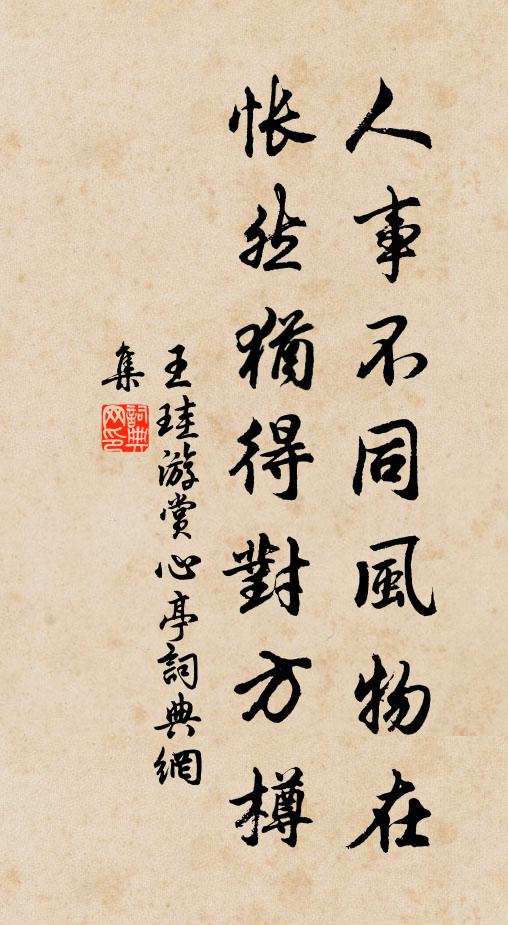 人事不同風物在
悵然猶得對方樽
王珪游賞心亭詞典網
集
詞典
网印